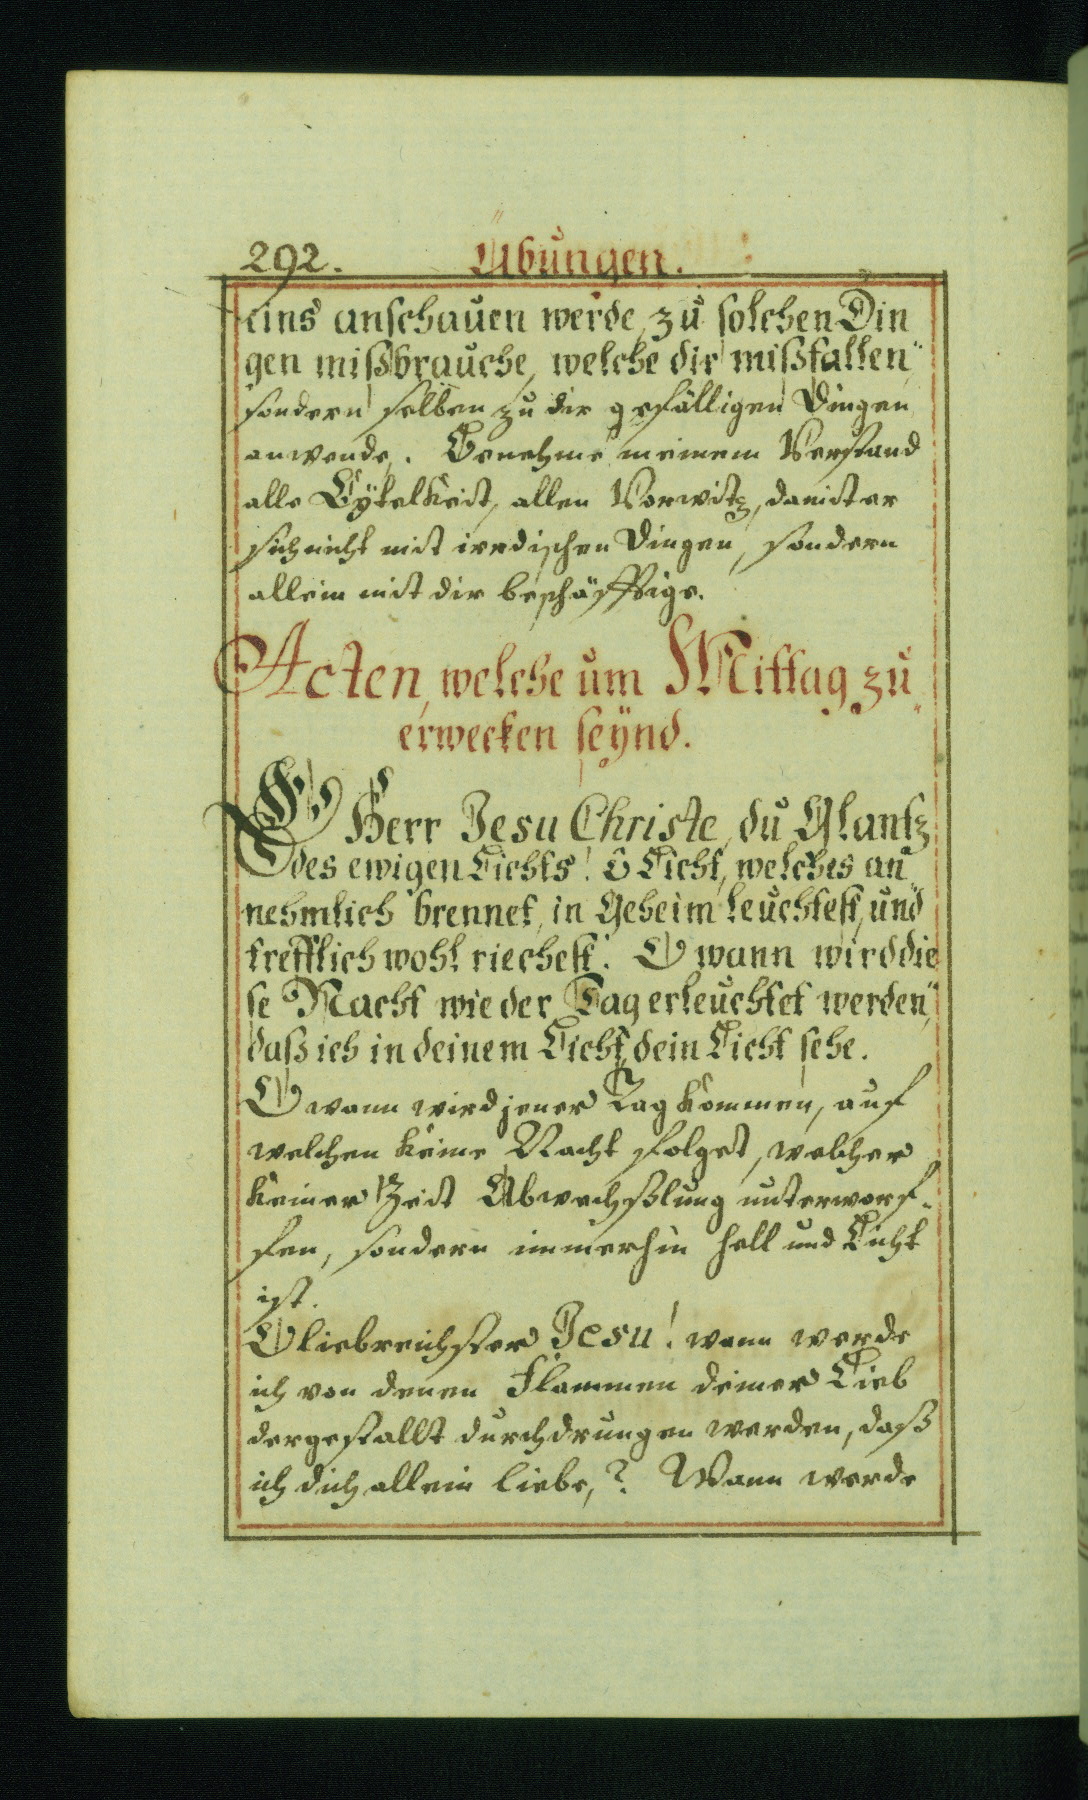 292. Übungen.
eins anschauen werde, zu solchen Din
gen mißbrauche, welche dir mißfallen,"
sondern selben zu dir gefälligen Dingen
anwende. Benehme meinem Verstand
alle Eÿtelkeit, allen Vorwitz, damit er
sich nicht mit irrdischen Dingen, sondern
allein mit dir beschäfftige.
Acten, welche um Mittag zu
erwecken seÿnd.
O Herr Jesu Christe, du Glantz
des ewigen Lichts! ô Licht, welches an"
nehmlich brennet, in Geheim leuchtest, und
trefflich wohl riechest. O wann wird die
se Nacht wie der Tag erleuchtet werden,"
daß ich in deinem Licht, dein Licht sehe.
O wann wird jener Tag kommen, auf
welchen keine Nacht folget, welcher
keiner Zeit Abwechßlung unterworf-
fen, sondern immerhin hell und Licht
ist.
O liebreichster Jesu! wann werde
ich von denen Flammen deiner Lieb
dergestallt durchdrungen werden, daß
ich dich allein liebe,? Wann werde